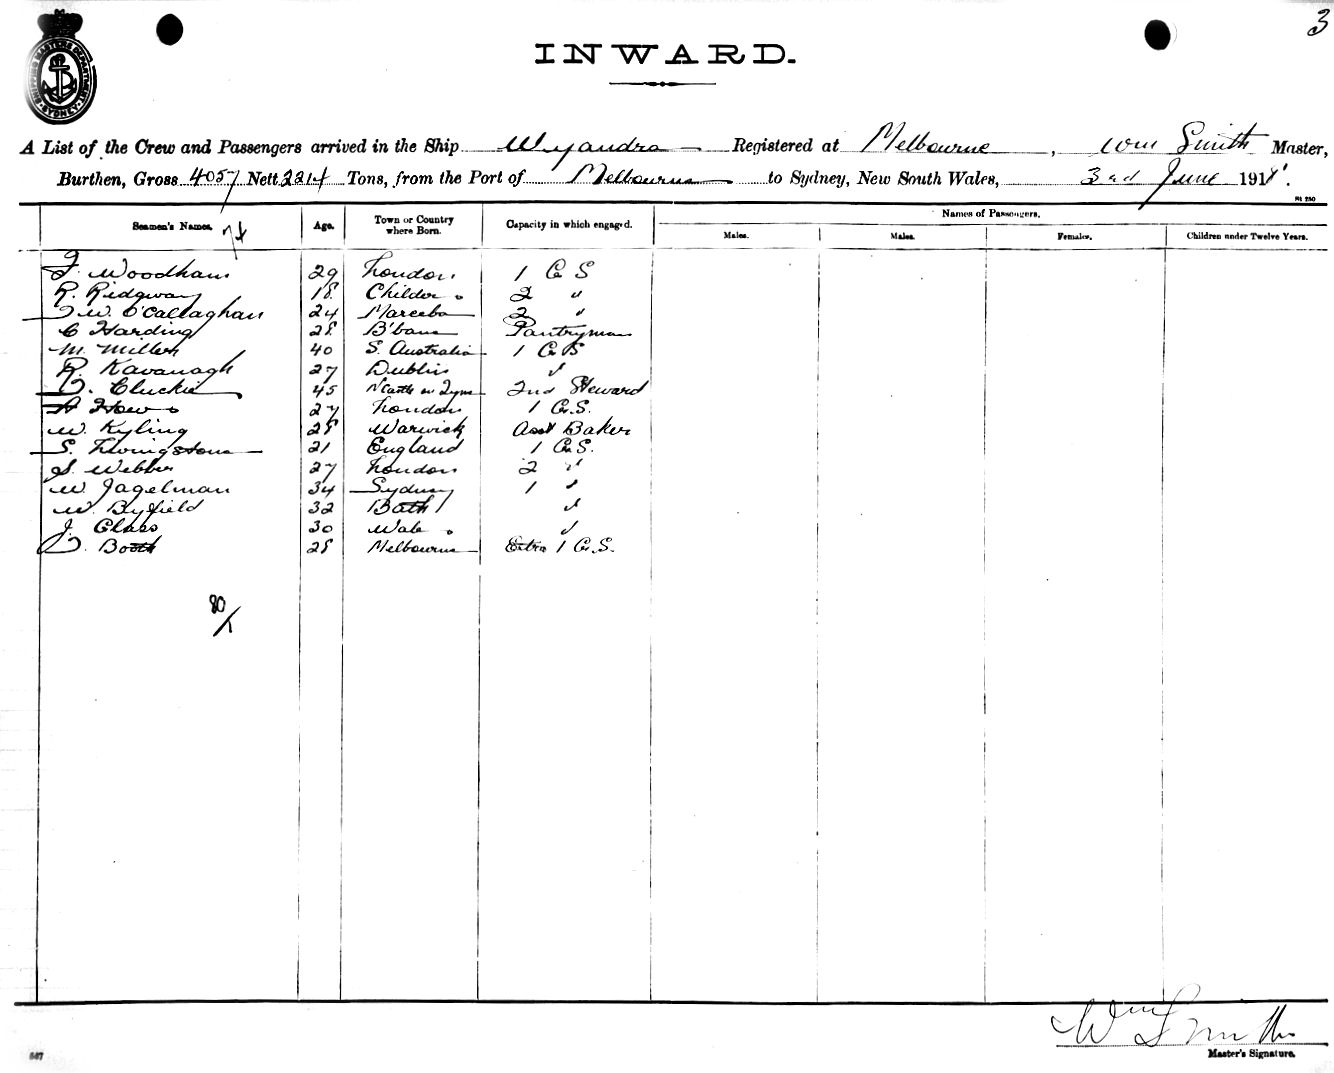 3
SHIPPING MASTERS DEPARTMENT SYDNEY
INWARD.
A List of the Crew and Passengers arrived in the Ship Wyandra Registered at Melbourne, Wm Smith Master,
Burthen, Gross 4057 Nett 2214 Tons, from the Port of Melbourne to Sydney, New South Wales, 3rd June 191
Seamen's Names. 74 Age. Town or Country where Born. Capacity in which engaged. Names of Passengers.
Males. Males. Females. Children under Twelve Years.
F. Woodham 29 London 1 G S
R. Ridgway 18 Childer s 2 "
W. O'Callaghan 24 Mareeba 2 "
C Harding 28 B'bane Pantryman
M. Miller 40 S. Australia 1 G S
R. Kavanagh 27 Dublin "
D. Cluckie 45 N'Castle on Tyne 2nd Steward
How 27 London 1 G.S.
W. Kyling 28 Warwick Asst Baker
S. Livingstone 21 England 1 G.S.
S. Webber 27 London 2 "
W. Jagelman 34 Sydney 1 "
W. Byfield 32 Bath "
J. Glass 30 Wale s "
D. Booth 28 Melbourne Extra 1 G.S.
80/1
Wm Smith
Master's Signature.